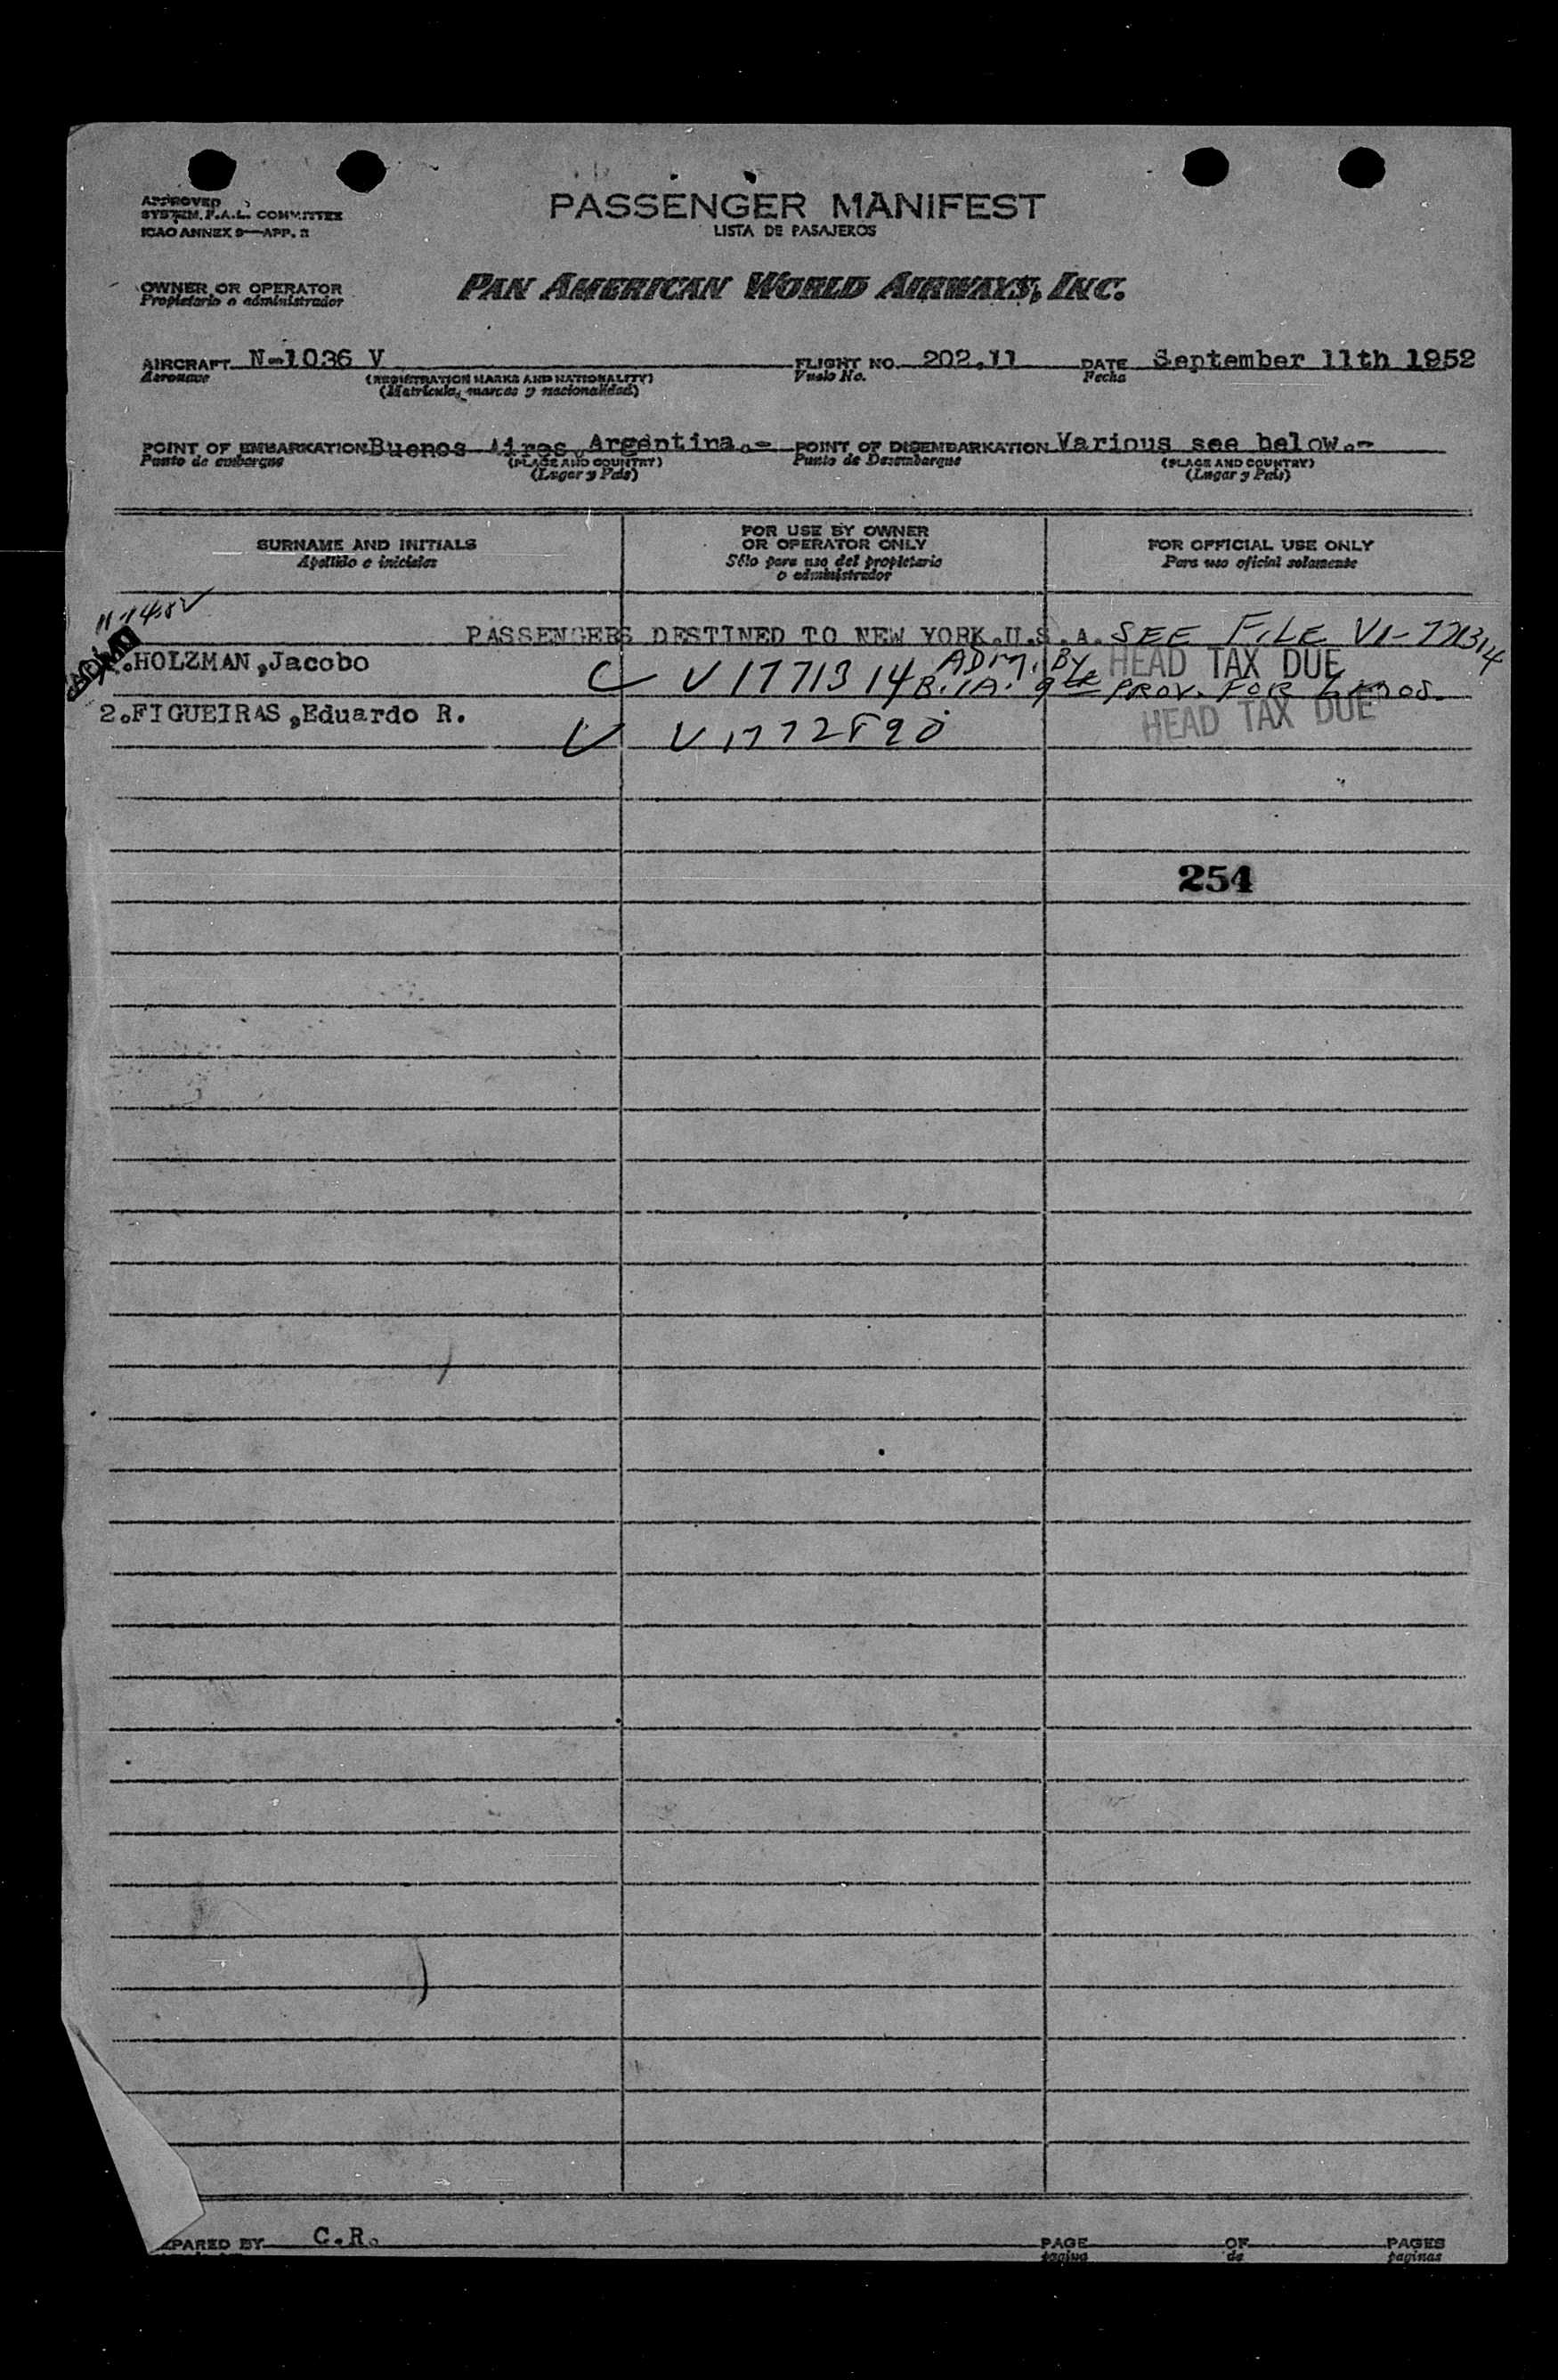 APPROVED
SYSTEM, F.A.L. COMMITTEE
ICAO ANNEX 9—APP. 2
PASSENGER MANIFEST
LISTA DE PASAJEROS
OWNER OR OPERATOR
Propietario o administrador
PAN AMERICAN WORLD AIRWAYS, INC.
AIRCRAFT N-1036 V FLIGHT NO. 202.11 DATE September 11th 1952
Aeronave (REGISTRATION MARKS AND NATIONALITY) Vuelo No. Fecha
(Matrícula, marcas y nacionalidad)
POINT OF EMBARKATION Buenos Aires, Argentina.- POINT OF DISEMBARKATION Various see below.-
Punto de embarque (PLACE AND COUNTRY) Punto de Desembarque (PLACE AND COUNTRY)
(Lugar y País) (Lugar y País)
SURNAME AND INITIALS
Apellido e iniciales
FOR USE BY OWNER
OR OPERATOR ONLY
Sólo para uso del propietario
o administrador
FOR OFFICIAL USE ONLY
Para uso oficial solamente
PASSENGERS DESTINED TO NEW YORK.U.S.A. SEE FILE V1-771314
.HOLZMAN,Jacobo V1771314 ADM. BY HEAD TAX DUE
B.I.A. 9th PROV. FOR MOS.
2.FIGUEIRAS,Eduardo R. V1772890 HEAD TAX DUE
254
PARED BY C.R. PAGE OF PAGES
página de páginas